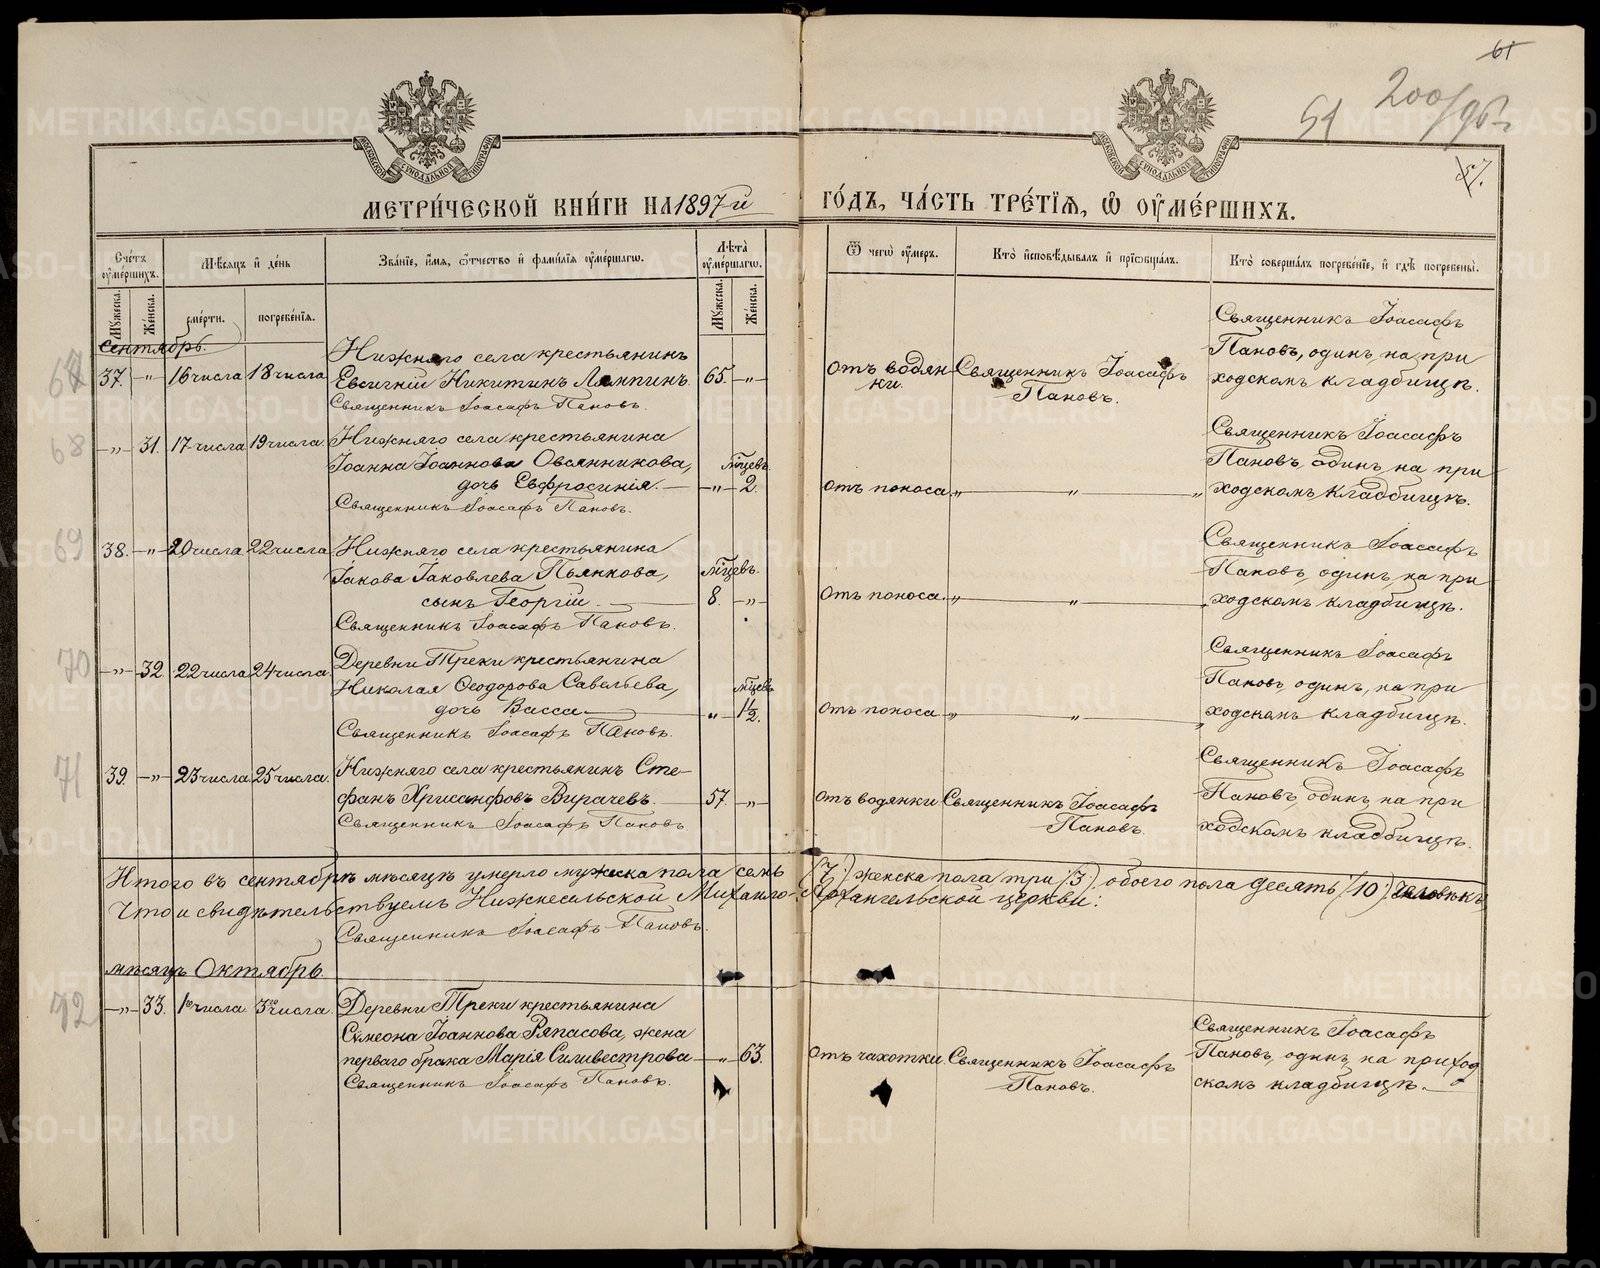 61
51 200/96
57.
МЕТРИ́ЧЕСКОЙ КНИ́ГИ НА 1897й ГО́ДЪ, ЧА́СТЬ ТРЕ́ТІѦ, Ѡ ОУ҆МЕ́РШИХЪ.
Сче́тъ оу҆ме́ршихъ.
Мужеска.
Же́нска.
Мѣ́сяцъ и де́нь
сме́рти.
погребе́нія.
Зва́ніе, и҆́мя, ѻ҆́тчество и҆ фами́лія оу҆ме́ршагѡ.
Лѣта̀ оу҆ме́ршагѡ.
Мужеска.
Же́нска.
Ѿ чегѡ̀ оу҆́меръ.
Кто̀ и҆сповѣ́дывалъ и҆ прїѡбща́лъ.
Кто̀ соверша́лъ погребе́ніе, и҆ гдѣ̀ погребены̀.
сентябрь.
67
37. -„- 16 числа 18 числа
Нижняго села крестьянинъ
Евсигній Никитинъ Ляпинъ. 65. -„-
Священникъ Іоасафъ Пановъ.
отъ водян
ки.
Священникъ Іоасафъ
Пановъ.
Священникъ Іоасафъ
Пановъ, одинъ, на при
ходскомъ кладбищѣ.
68
-„- 31. 17 числа 19 числа.
Нижняго села крестьянина
Іоанна Іоаннова Овсянникова,
дочь Евфросинія. -„- мцевъ 2.
Священникъ Іоасафъ Пановъ.
отъ поноса. „ „ „
Священникъ Іоасафъ
Пановъ, одинъ, на при
ходскомъ кладбищѣ.
69
38. -„- 20 числа 22 числа
Нижняго села крестьянина
Іакова Іаковлева Пьянкова,
сынъ Георгій. мцевъ. 8. -„-
Священникъ Іоасафъ Пановъ.
отъ поноса. „ „
Священникъ Іоасафъ
Пановъ, одинъ, на при
ходскомъ кладбищѣ.
70
-„- 32 22 числа 24 числа.
Деревни Треки крестьянина
Николая Ѳеодорова Савельева,
дочь Васса „ мцевъ 1½.
Священникъ Іоасафъ Пановъ.
отъ поноса „ „ „
Священникъ Іоасафъ
Пановъ, одинъ, на при
ходскомъ кладбищѣ.
71
39. -„- 23 числа 25 числа.
Нижняго села крестьянинъ Сте-
фанъ Хрисанфовъ Вирачевъ. 57. -„-
Священникъ Іоасафъ Пановъ
отъ водянки.
Священникъ Іоасафъ
Пановъ.
Священникъ Іоасафъ
Пановъ, одинъ, на при
ходскомъ кладбищѣ.
Итого въ сентябрѣ мѣсяцѣ умерло мужеска пола семь (7.) женска пола три (3.) обоего пола десять (10) человѣкъ
Что и свидѣтельствуемъ Нижнесельской Михаило-Архангельской церкви:
Священникъ Іоасафъ Пановъ.
мѣсяцъ Октябрь.
72
-„- 33. 1го числа 3го числа.
Деревни Треки крестьянина
Сѵмеона Іоаннова Ряпасова, жена
перваго брака Марія Силивестрова -„- 63.
Священникъ Іоасафъ Пановъ.
отъ чахотки.
Священникъ Іоасафъ
Пановъ.
Священникъ Іоасафъ
Пановъ, одинъ, на приход
скомъ кладбищѣ.
METRIKI.GASO-URAL.RU